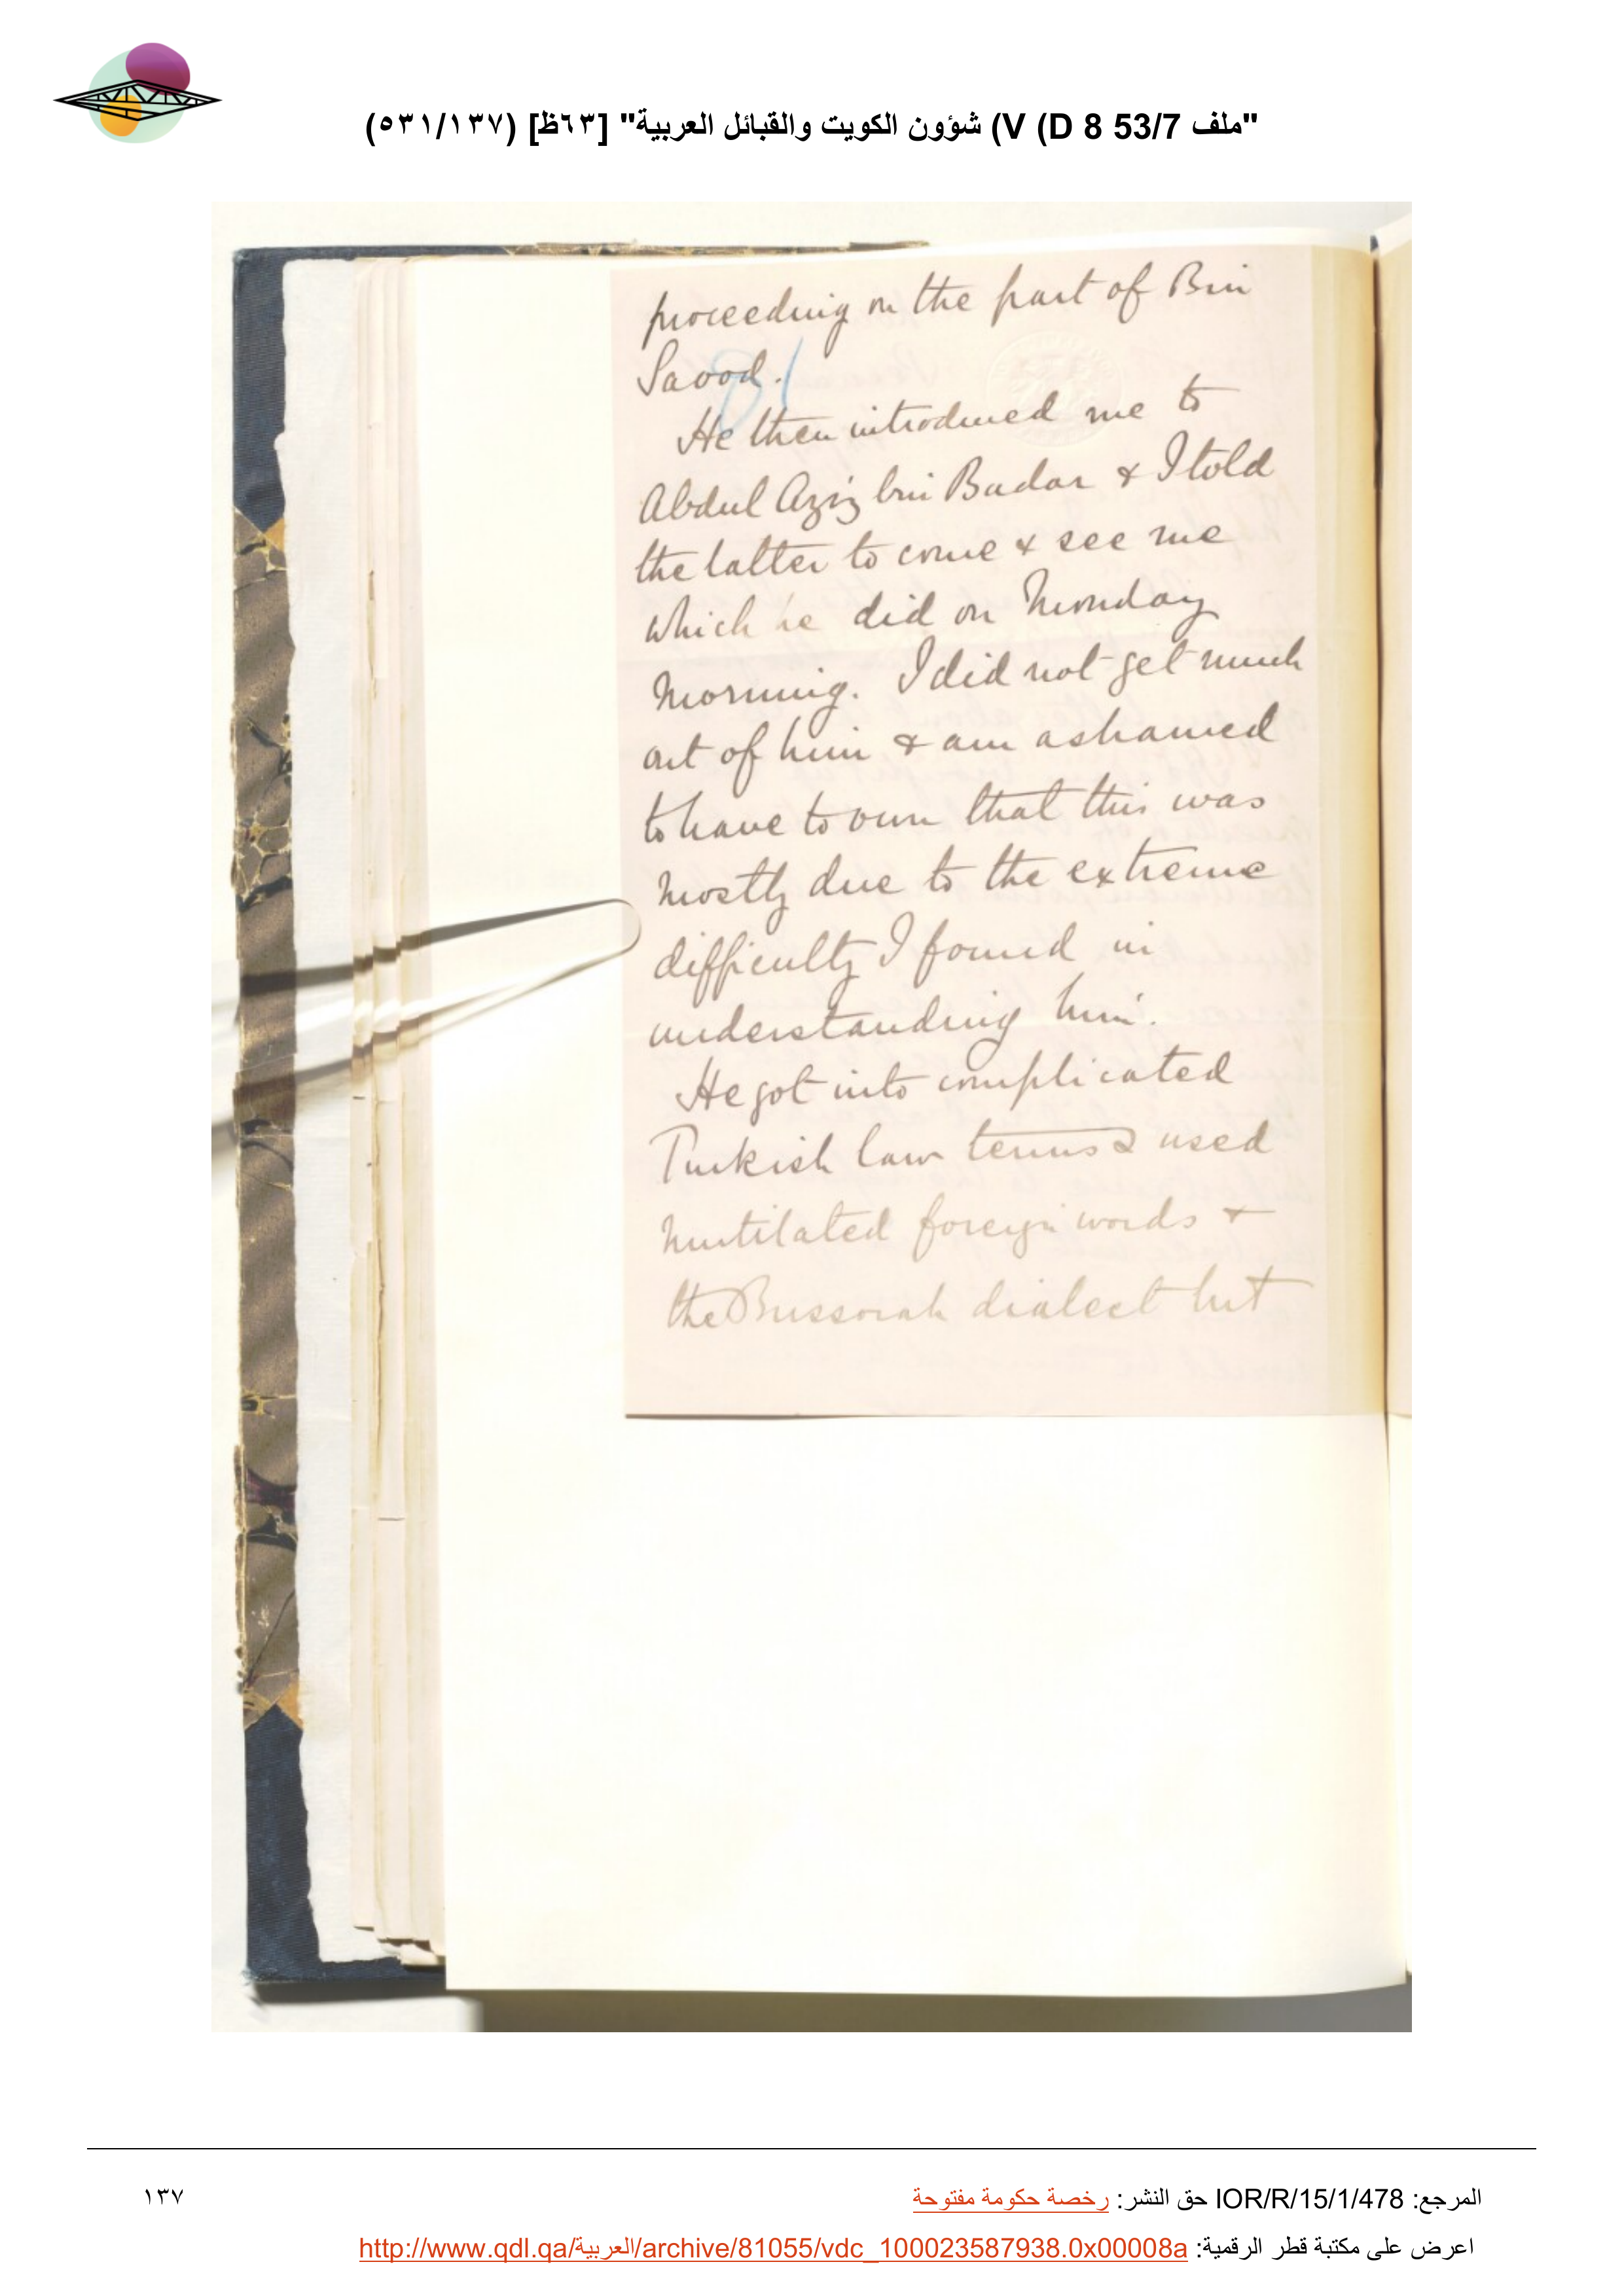 "ملف 53/7 V (D 8) شؤون الكويت والقبائل العربية" [٦٣ظ] (٥٣١/١٣٧)
proceeding on the part of Bin
Saood.
He then introduced me to
Abdul Aziz bin Badar & I told
the latter to come & see me
which he did on Monday
Morning. I did not get much
out of him & am ashamed
to have to own that this was
mostly due to the extreme
difficulty I found in
understanding him.
He got into complicated
Turkish law terms & used
mutilated foreign words &
the Bussorah dialect but
المرجع: IOR/R/15/1/478 حق النشر: رخصة حكومة مفتوحة
١٣٧
اعرض على مكتبة قطر الرقمية: http://www.qdl.qa/العربية/archive/81055/vdc_100023587938.0x00008a